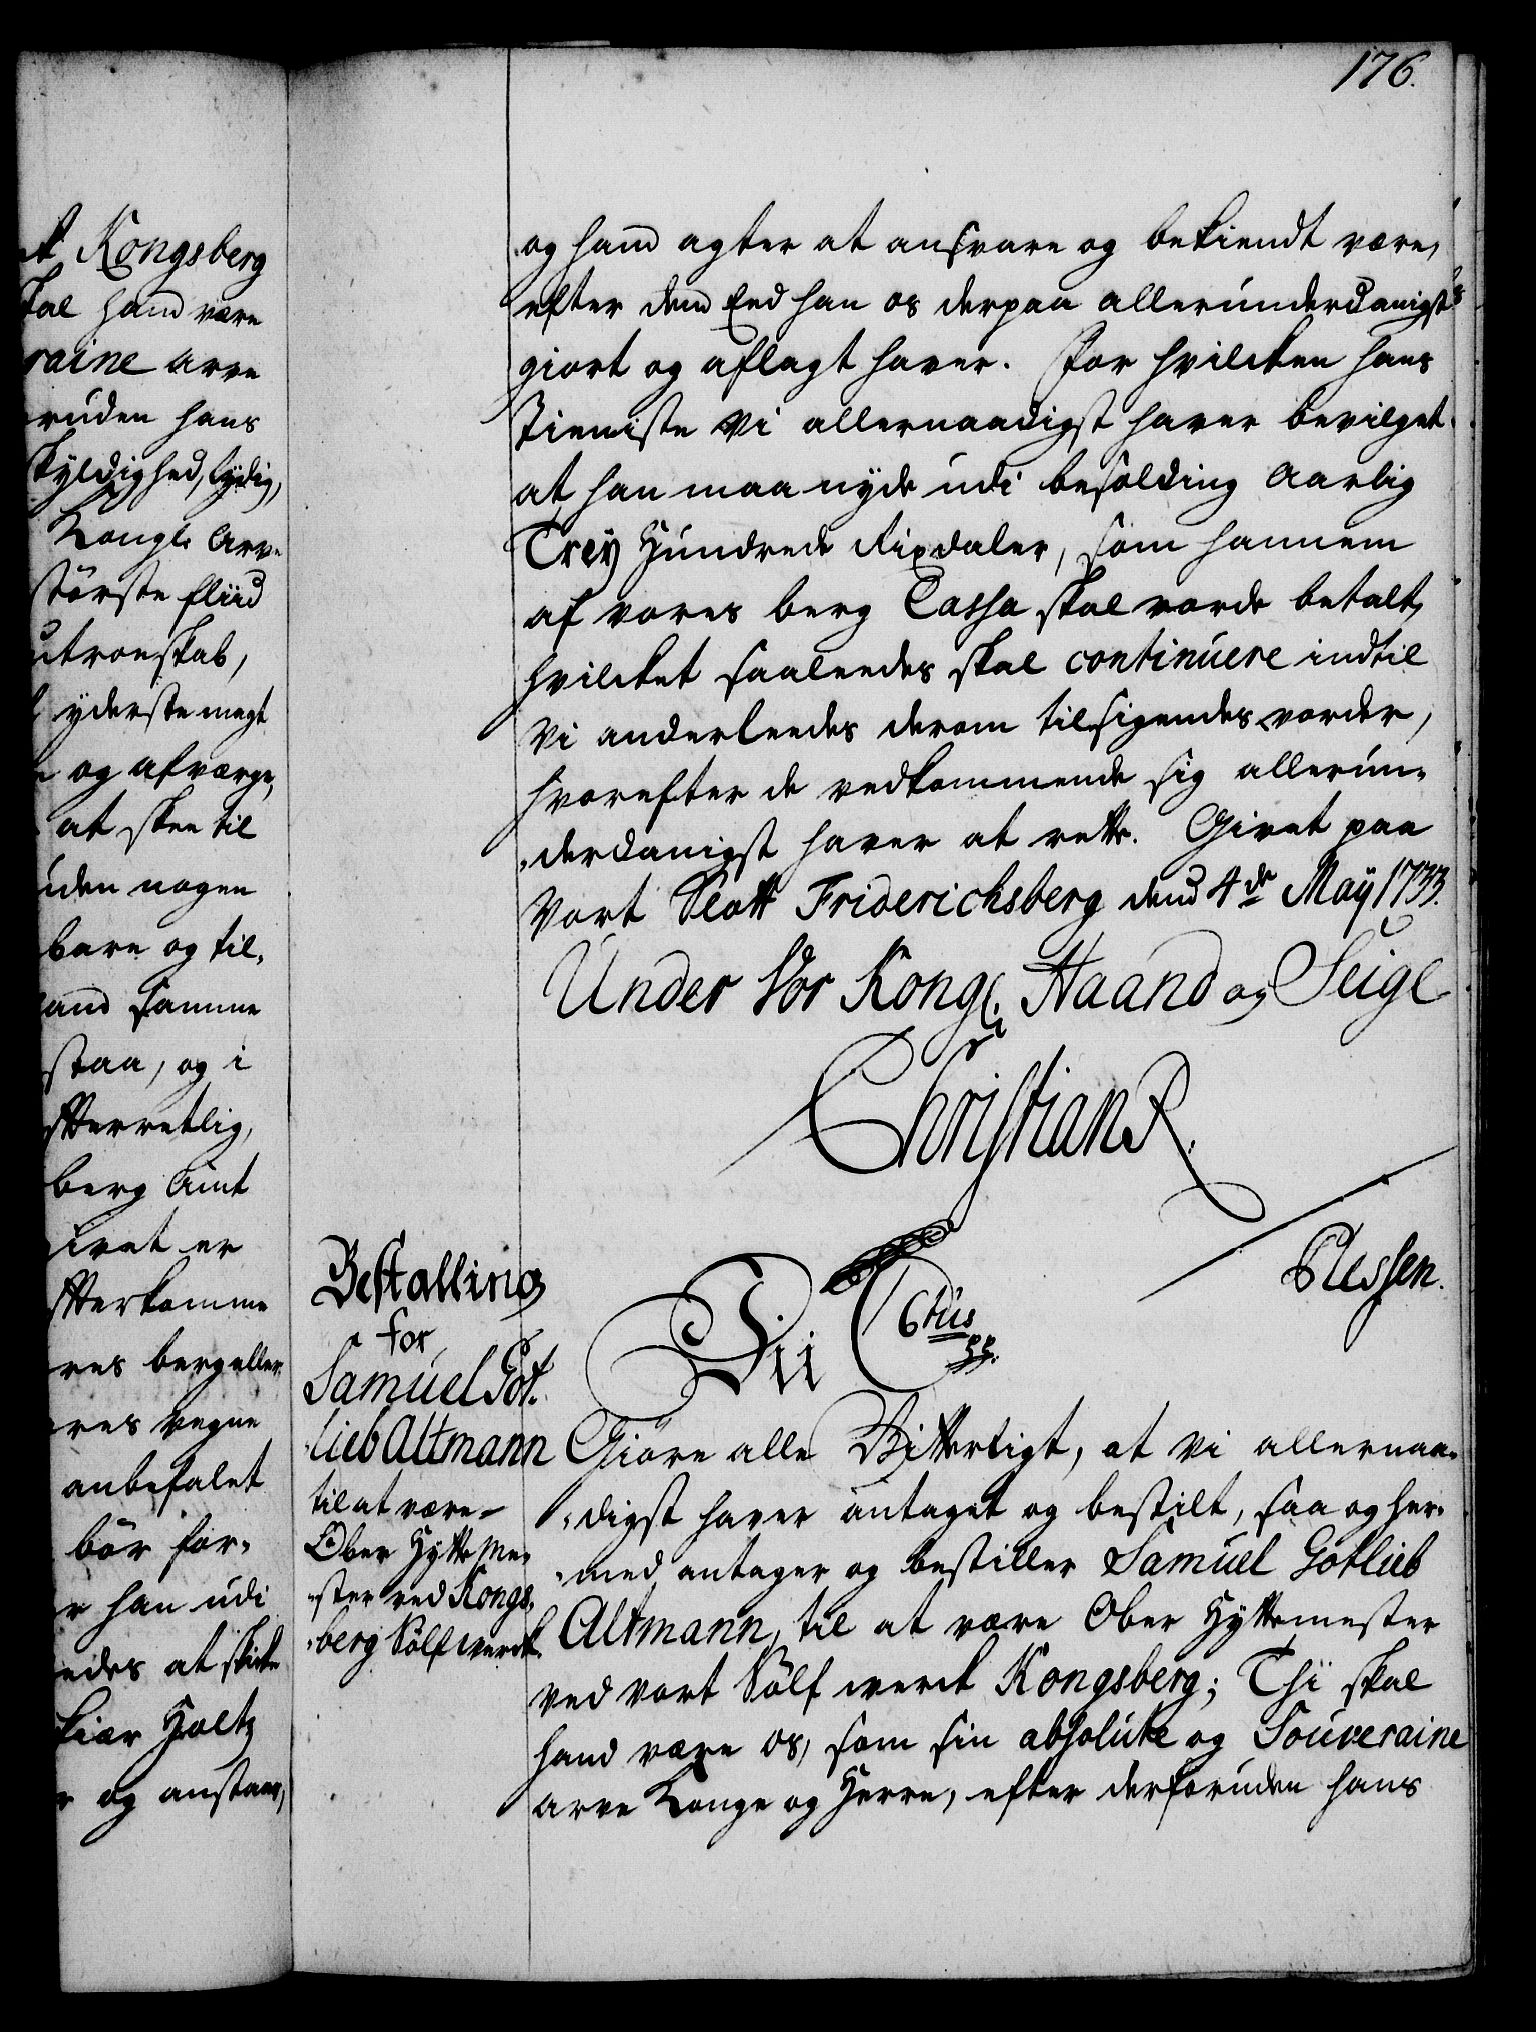 176.
t Kongsberg
kal hand være
raine Arve
ruden hans
skyldighed, lydig,
Kongl. Arve
störste fliid
utroeskab,
yderste magt
og afværge,
at skee til
uden nogen
bare og til,
and samme
staa, og i
efterretlig,
berg Amt
ivet er
efterkomme
res berg eller
res vegne
anbefalet
bör for,
r han udi
edes at skicke
kiær Holtz
r og anstaar,
og hand agter at ansvare og bekiendt være,
efter dend Eed han os derpaa allerunderdanigst
giort og aflagt haver. For hvilcken hans
Tieniste Vi allernaadigst haver bevilget
at han maa nyde udi besolding Aarlig
Treÿ Hundrede Rixdaler, som hannem
af vores berg Cassa skal vorde betalt,
hvilcket saaleedes skal continuere indtil
Vi anderleedes derom tilsigendes vorder,
hvorefter de vedkommende sig allerun-
derdanigst haver at rette. Givet paa
Vort Slott Friderichsberg dend 4de Maÿ 1733.
Under Vor Kongl. Haand og Seigl
Christian R.
Plessen.
Bestalling
for
Samuel Got-
lieb Altmann
til at være
Ober Hytte Me-
ster ved Kongs-
berg Sölfwerck.
Vii C 6tus
pp.
Giöre alle Vitterligt, at Vi allernaa-
digst haver antaget og bestilt, saa og her-
med antager og bestiller Samuel Gotlieb
Altmann, til at være Ober Hyttemester
ved vort Sölf werck Kongsberg; Thi skal
hand være os, som sin absolute og Souveraine
Arve Konge og Herre, efter derforuden hans